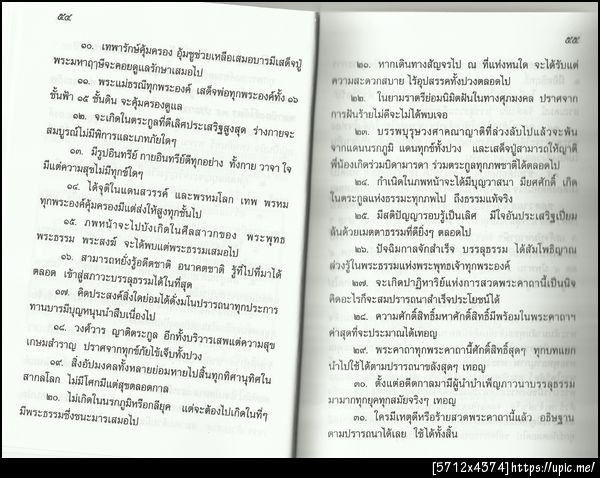 ๕๔
๑๐. เทพารักษ์คุ้มครอง อุ้มชูช่วยเหลือเสมอบารมีเสด็จปู่
พระมหาฤาษีจะคอยดูแลรักษาเสมอไป
๑๑. พระแม่ธรณีทุกพระองค์ เสด็จพ่อทุกพระองค์ทั้ง ๑๖
ชั้นฟ้า ๑๕ ชั้นดิน จะคุ้มครองดูแล
๑๒. จะเกิดในตระกูลที่ดีเลิศประเสริฐสูงสุด ร่างกายจะ
สมบูรณ์ไม่มีพิการและเภทภัยใดๆ
๑๓. มีรูปอินทรีย์ กายอินทรีย์ดีทุกอย่าง ทั้งกาย วาจา ใจ
มีแต่ความสุขไม่มีทุกข์ใดๆ
๑๔. ได้จุติในแดนสวรรค์ และพรหมโลก เทพ พรหม
ทุกพระองค์คุ้มครองมีแต่ส่งให้สูงทุกชั้นไป
๑๕. ภพหน้าจะไปบังเกิดในศีลสาวกของ พระพุทธ
พระธรรม พระสงฆ์ จะได้พบแต่พระธรรมเสมอไป
๑๖. สามารถหยั่งรู้อดีตชาติ อนาคตชาติ รู้ที่ไปที่มาได้
ตลอด เข้าสู่สภาวะบรรลุธรรมได้ในที่สุด
๑๗. คิดประสงค์สิ่งใดย่อมได้ดั่งมโนปรารถนาทุกประการ
ทานบารมีบุญหนุนนำสืบเนื่องไป
๑๘. วงศ์วาร ญาติตระกูล อีกทั้งบริวารเสพแต่ความสุข
เกษมสำราญ ปราศจากทุกข์ภัยไข้เจ็บทั้งปวง
๑๙. สิ่งอัปมงคลทั้งหลายย่อมหายไปสิ้นทุกทิศานุทิศใน
สากลโลก ไม่มีโศกมีแต่สุขตลอดกาล
๒๐. ไม่เกิดในนรกภูมิหรือกลียุค แต่จะต้องไปเกิดในที่ๆ
มีพระธรรมซึ่งชนะมารเสมอไป
๕๕
๒๑. หากเดินทางสัญจรไป ณ ที่แห่งหนใด จะได้รับแต่
ความสะดวกสบาย ไร้อุปสรรคทั้งปวงตลอดไป
๒๒. ในยามราตรีย่อมนิมิตฝันในทางศุภมงคล ปราศจาก
การฝันร้ายไม่ดีจะไม่ได้พบเจอ
๒๓. บรรพบุรุษวงศาคณาญาติที่ล่วงลับไปแล้วจะพ้น
จากแดนนรกภูมิ แดนทุกข์ทั้งปวง และเสด็จปู่สามารถให้ญาติ
พี่น้องเกิดร่วมบิดามารดา ร่วมตระกูลทุกภพชาติได้ตลอดไป
๒๔. กำเนิดในภพหน้าจะได้มีบุญวาสนา มียศศักดิ์ เกิด
ในตระกูลแห่งธรรมะทุกภพไป ถึงธรรมแท้จริง
๒๕. มีสติปัญญารอบรู้เป็นเลิศ มีใจอันประเสริฐเปี่ยม
ล้นด้วยเมตตาธรรมที่ดียิ่งๆ ตลอดไป
๒๖. ปัจฉิมกาลจักสำเร็จ บรรลุธรรม ได้สัมโพธิญาณ
ล่วงรู้ในพระธรรมแห่งพระพุทธเจ้าทุกพระองค์
๒๗. จะเกิดปาฏิหาริย์แห่งการสวดพระคาถานี้เป็นนิจ
คิดอะไรก็จะสมปรารถนาสำเร็จประโยชน์ได้
๒๘. ความศักดิ์สิทธิ์มหาศักดิ์สิทธิ์มีพร้อมในพระคาถาฯ
ค่าสุดที่จะประมาณได้เทอญ
๒๙. พระคาถาทุกพระคาถานี้ศักดิ์สิทธิ์สุดๆ ทุกบทแยก
นำไปใช้ได้ตามปรารถนาขลังสุดๆ เทอญ
๓๐. ตั้งแต่อดีตกาลมามีผู้นำบำเพ็ญภาวนาบรรลุธรรม
มามากทุกยุคทุกสมัยจริงๆ เทอญ
๓๑. ใครมีเหตุดีหรือร้ายสวดพระคาถานี้แล้ว อธิษฐาน
ตามปรารถนาได้เลย ใช้ได้ทั้งสิ้น
[5712x4374]https://upic.me/